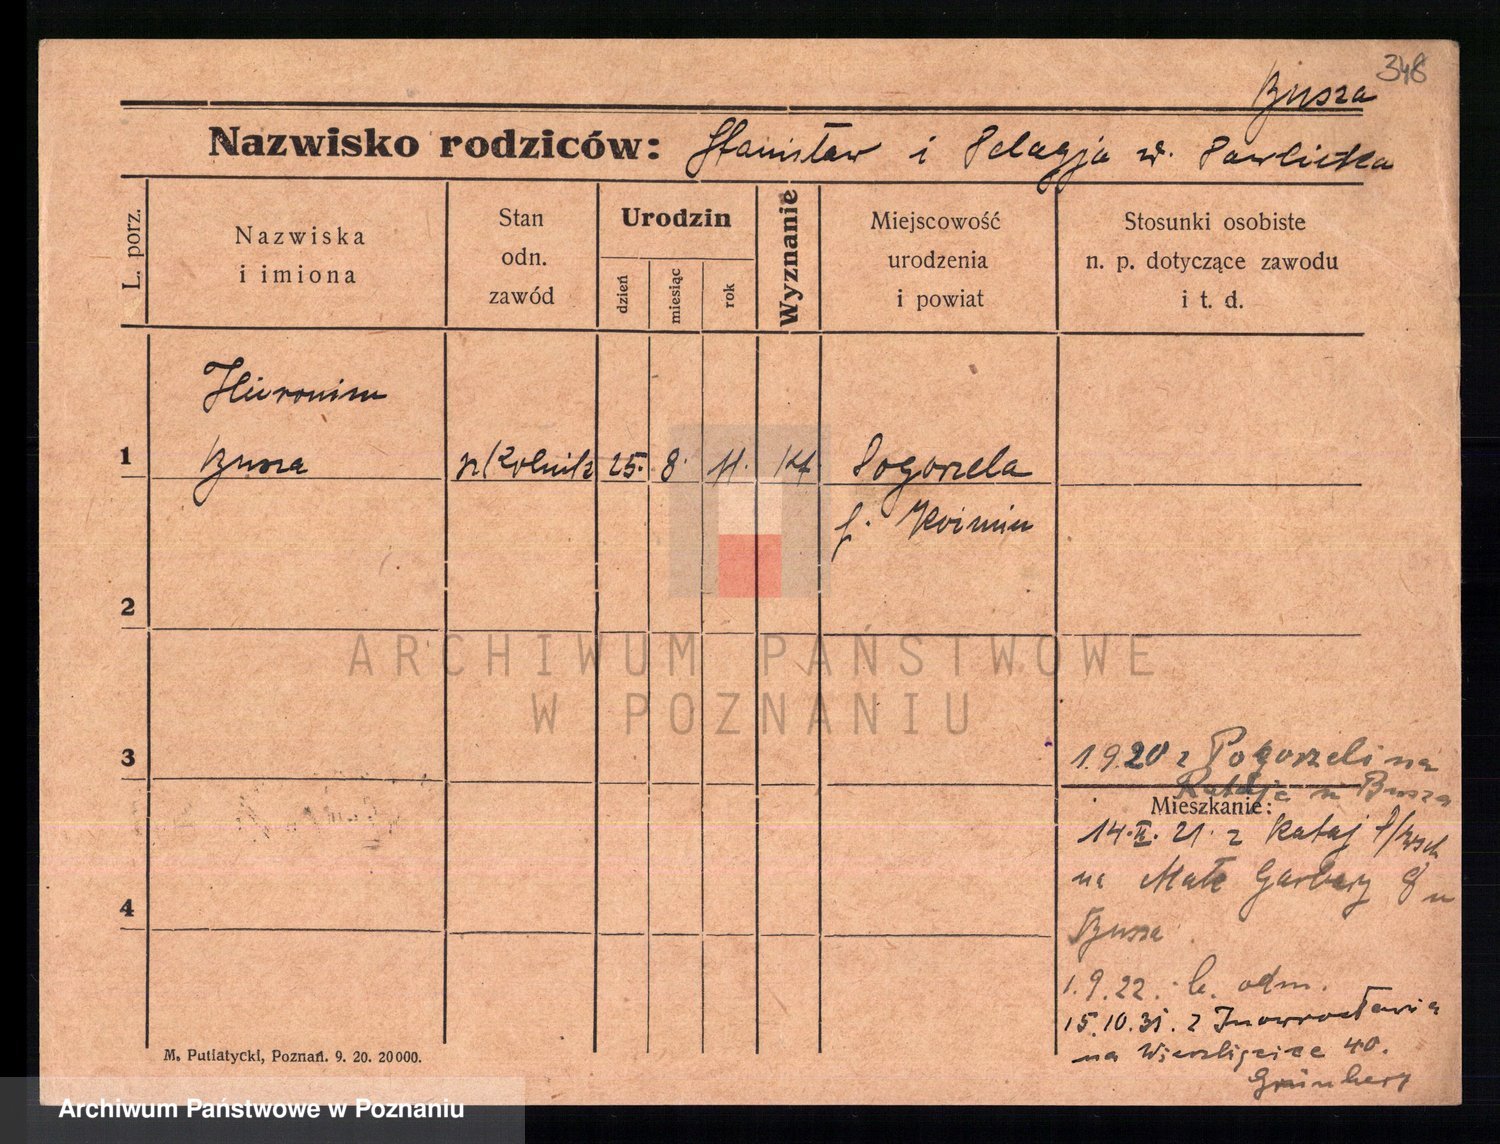 348
Busza
Nazwisko rodziców: Stanisław i Pelagja z d. Pawlicka
L. porz.
Nazwiska
i imiona
Stan
odn.
zawód
Urodzin
dzień
miesiąc
rok
Wyznanie
Miejscowość
urodzenia
i powiat
Stosunki osobiste
n. p. dotyczące zawodu
i t. d.
Hieronim
1 Busza 25. 8. 11. kt. Pogorzela
Koźmin
2
ARCHIWUM PAŃSTWOWE
W POZNANIU
3
1.9.20 z Pogorzeli na
Rataje Busza
Mieszkanie:
14.II.21. z Rataj
na Małe Garbary 8 u
Busza
4
1.9.22. odm.
15.10.31. z Inowrocławia
na Wierzbięcice 40.
Grünberg
M. Putiatycki, Poznań. 9. 20. 20000.
Archiwum Państwowe w Poznaniu